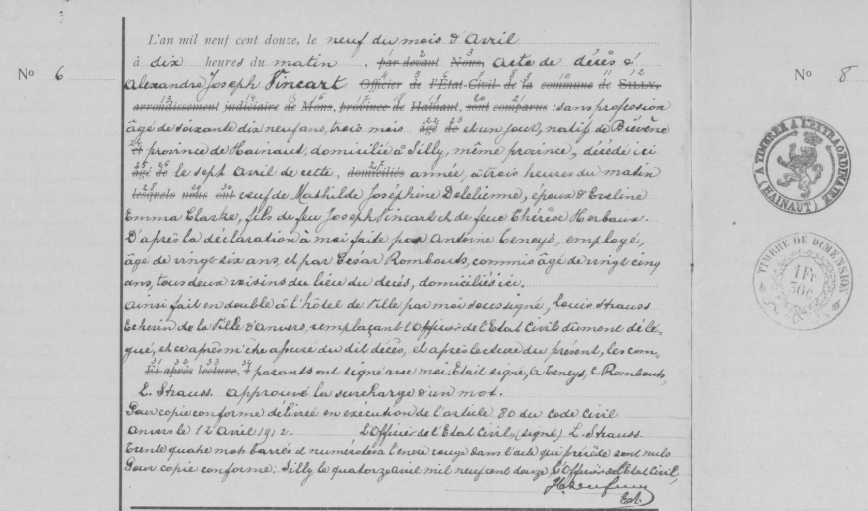 L'an mil neuf cent douze, le neuf du mois d'Avril
à dix heures du matin, par devant Nous, acte de décès d'
N° 6
N° 8
Alexandre Joseph Fincart Officier de l'État-Civil de la commune de SILLY,
arrondissement judiciaire de Mons, province de Hainaut, sont comparus: sans profession
âgé de soixante dix neuf ans, trois mois âgé de et un jour, natif de Biévène
et province de Hainaut, domicilié à Silly, même province, décédé ici
âgé de le sept avril de cette, domiciliés année, à trois heures du matin
lesquels nous ont veuf de Mathilde Joséphine Delelienne, époux d'Eveline
Emma Clarke, fils de feu Joseph Fincart et de feue Thérèse Herbaux.
D'après la déclaration à moi faite par Antoine Teneys, employé,
âgé de vingt-six ans, et par César Rombouts, commis âgé de vingt cinq
ans, tous deux voisins du lieu du décès, domiciliés ici.
Ainsi fait en double à l'hôtel de Ville par moi soussigné, Louis Strauss
Echevin de la Ville d'Anvers, remplaçant l'Officier de l'Etat Civil dûment délé-
gué, et ce après m'être assuré du dit décès, et après lecture du présent, les com-
Et après lecture, parants ont signé avec moi. Etait signé, A. Teneys, C. Rombouts,
L. Strauss. approuvé la surcharge d'un mot.
Pour copie conforme délivrée en exécution de l'article 80 du Code Civil
Anvers le 12 Avril 1912. L'Officier de l'Etat Civil, (signé) L. Strauss
Trente quatre mots barrés et numérotés à l'encre rouge dans l'acte qui précède sont nuls
Pour copie conforme: Silly le quatorze avril mil neuf cent douze, L'Officier de l'Etat Civil,
A TIMBRER A L'EXTRAORDINAIRE
(HAINAUT)
TIMBRE DE DIMENSION
1 Fr
50 c